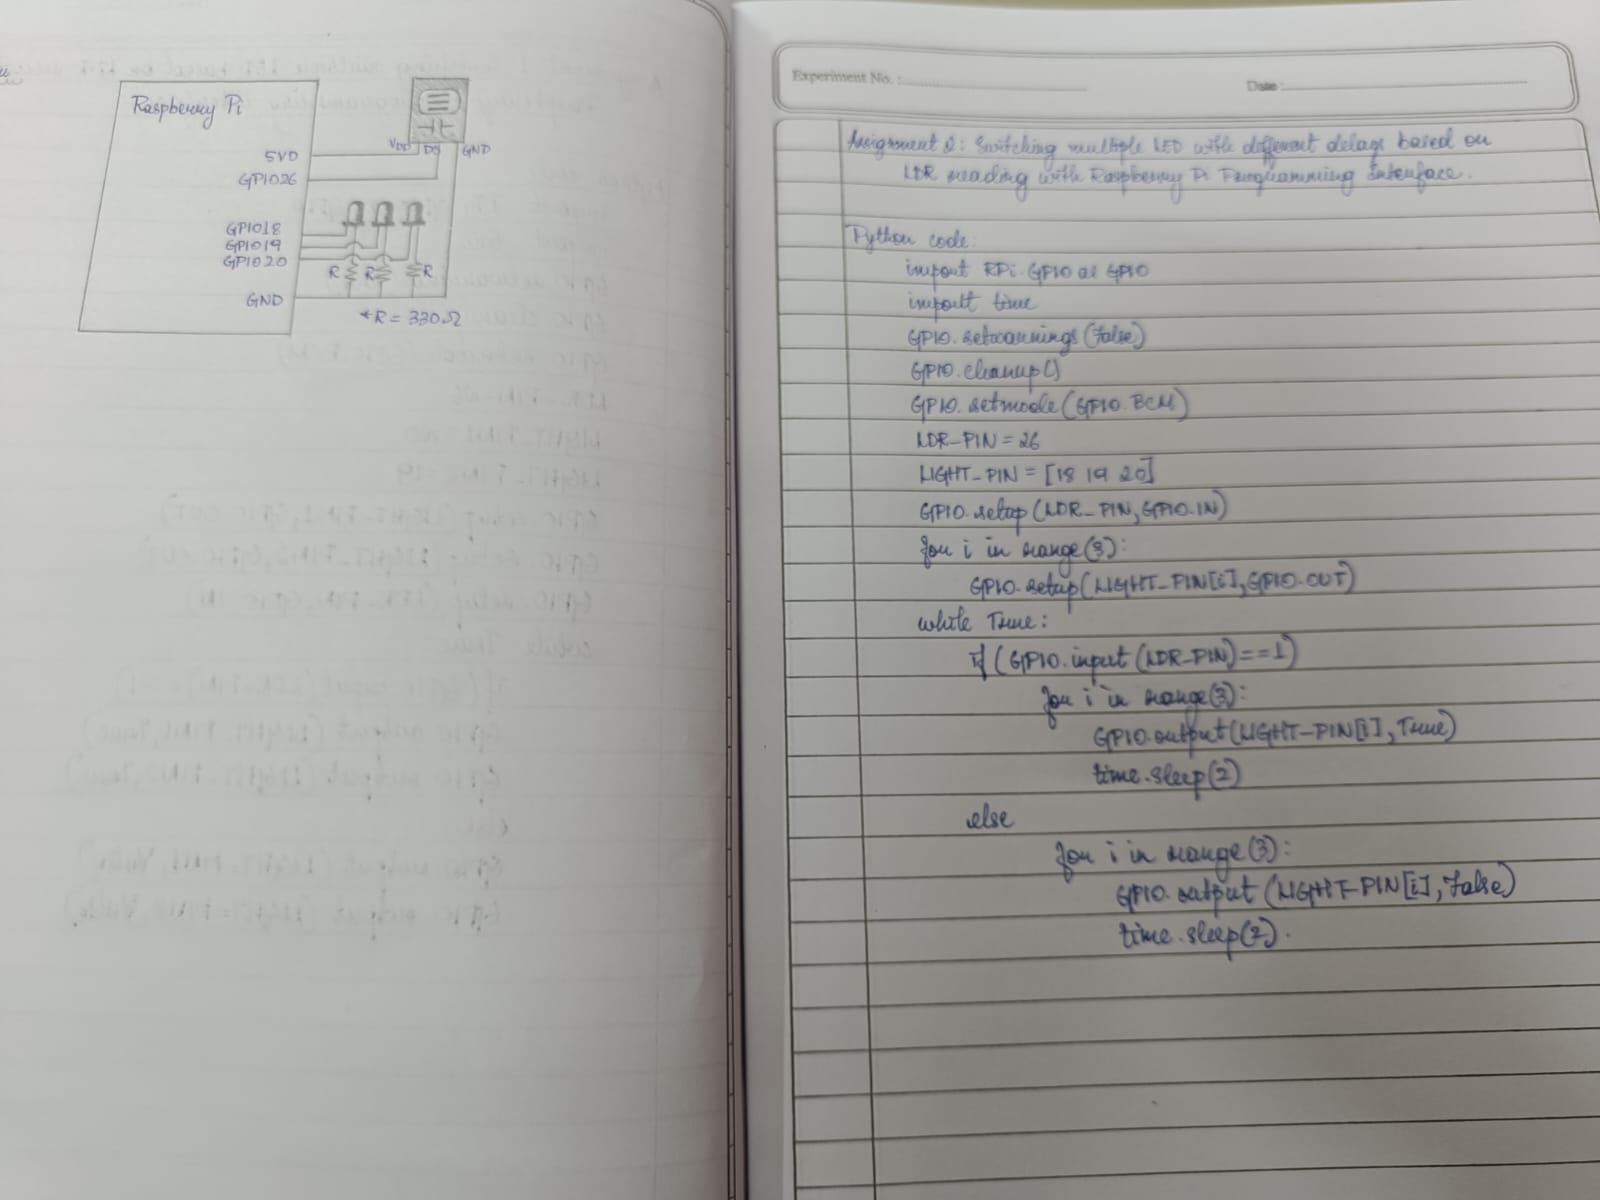 Raspberry Pi
VDD DO GND
5VD
GPIO26
GPIO18
GPIO19
GPIO20
R R R
GND
*R = 330Ω
Experiment No. :
Date :
Assignment 2: Switching multiple LED with different delays based on
LDR reading with Raspberry Pi Programming Interface.
Python code:
import RPi.GPIO as GPIO
import time
GPIO.setwarnings(False)
GPIO.cleanup()
GPIO.setmode(GPIO.BCM)
LDR_PIN = 26
LIGHT_PIN = [18 19 20]
GPIO.setup(LDR_PIN,GPIO.IN)
for i in range(3):
GPIO.setup(LIGHT_PIN[i],GPIO.OUT)
while True:
if (GPIO.input(LDR_PIN)==1)
for i in range(3):
GPIO.output(LIGHT_PIN[i],True)
time.sleep(2)
else
for i in range(3):
GPIO.output(LIGHT_PIN[i],False)
time.sleep(2).